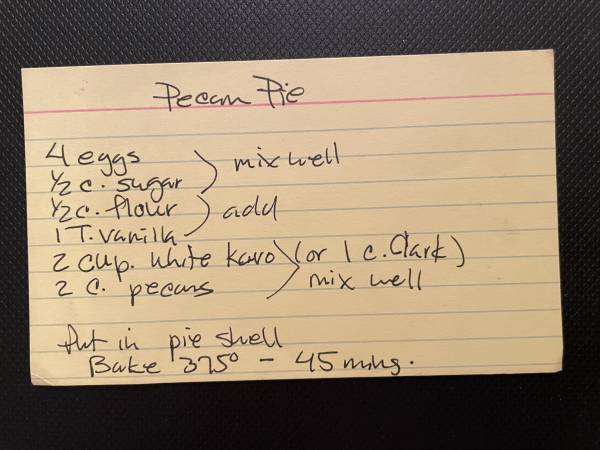 Pecan Pie
4 eggs
1/2 c. sugar ) mix well
1/2 c. flour
1 T. vanilla ) add
2 cup. white karo (or 1 c. Clark)
2 c. pecans ) mix well
Put in pie shell
Bake 375° - 45 mins.